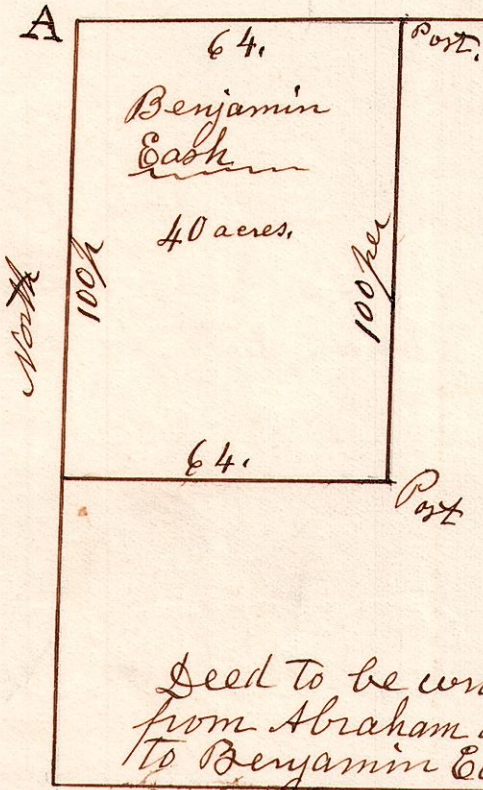 A
64.
Post.
Benjamin
Eash
40 acres.
North
100p
100 per
64.
Post
Deed to be
from Abraham
to Benjamin